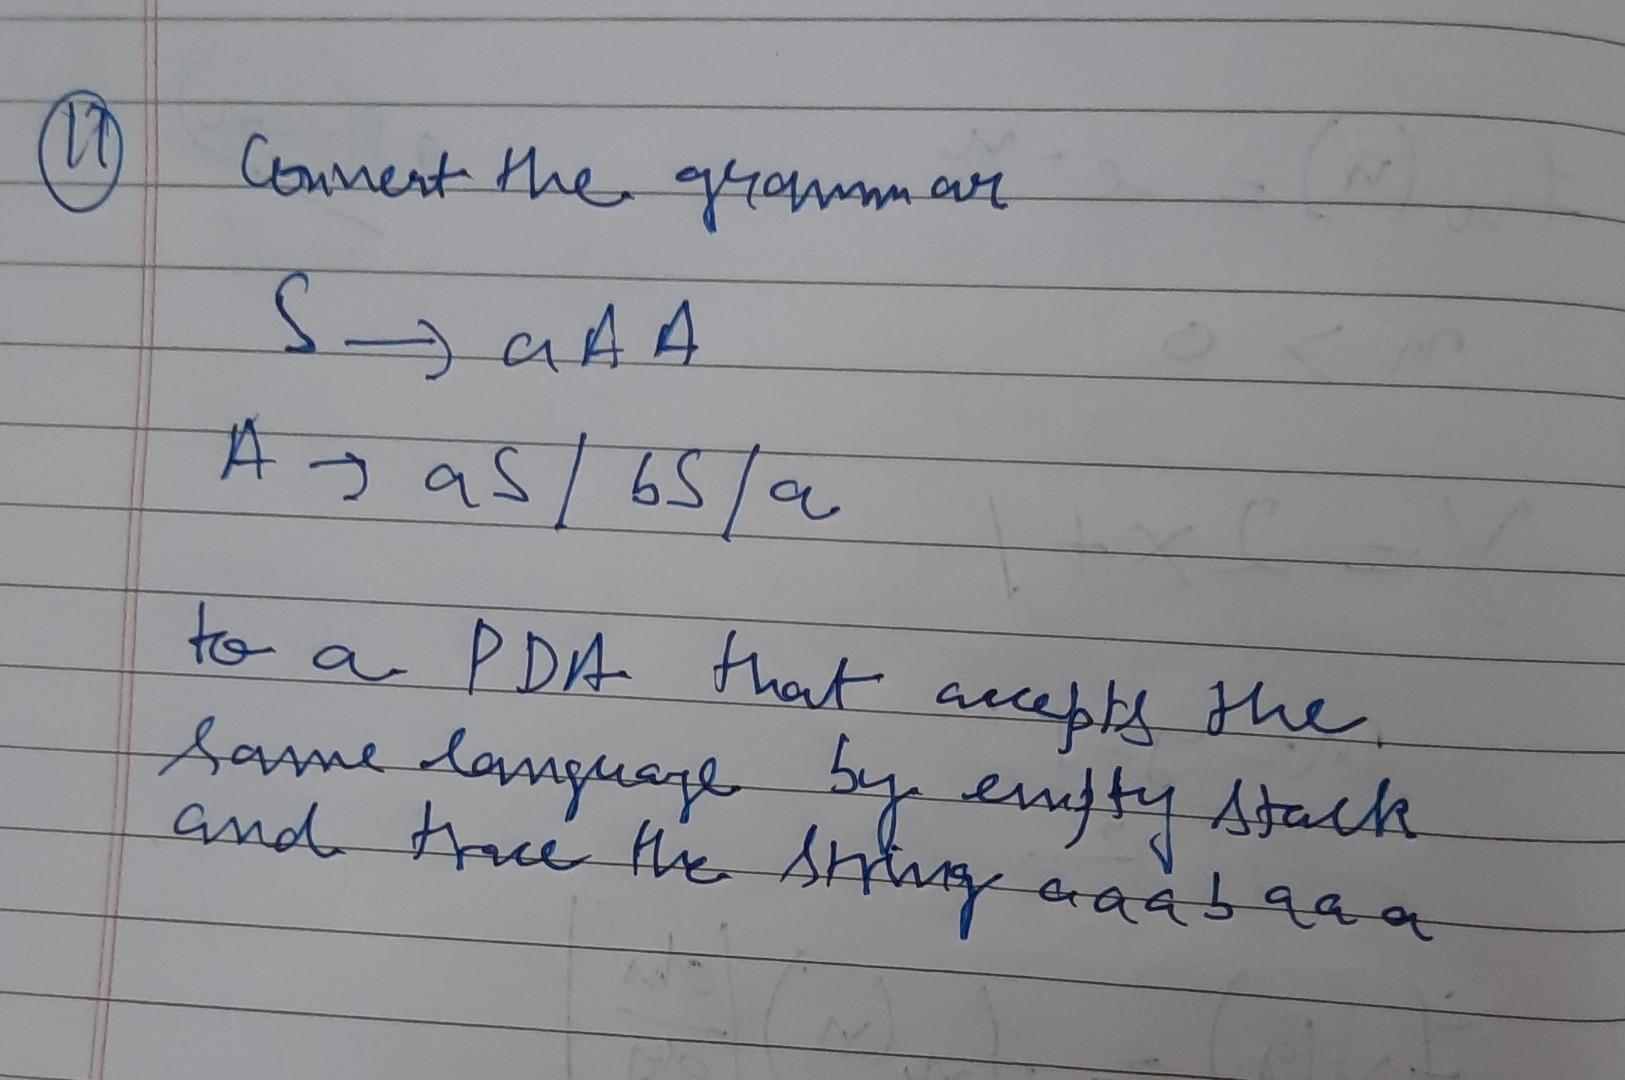 17 Convert the grammar
S → aAA
A → aS / bS / a
to a PDA that accepts the
same language by empty stack
and trace the string aaabaaa